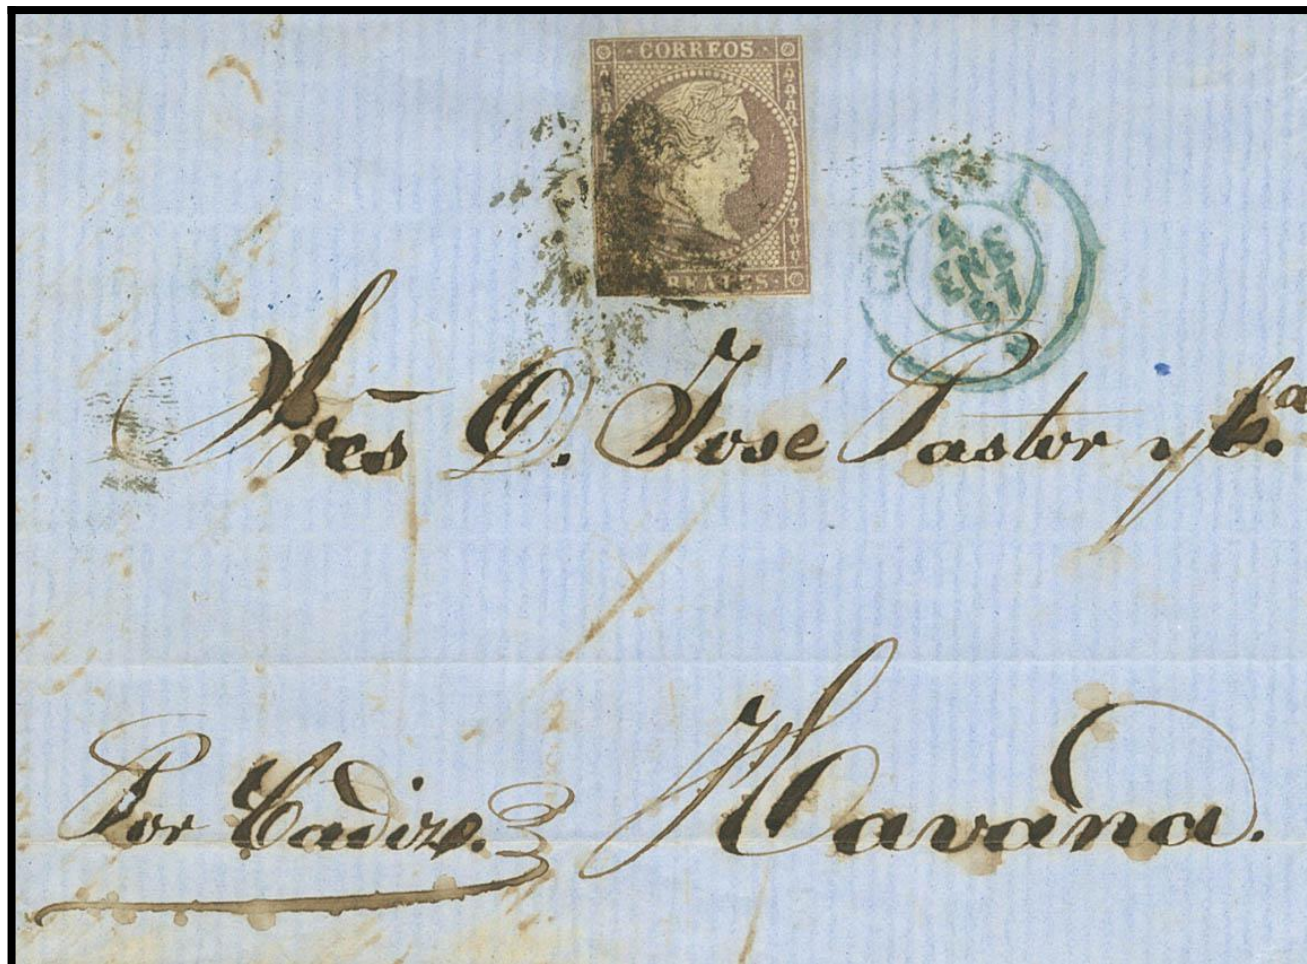 CORREOS
REALES.
4
ENE
57
Sres D. José Pastor y Cª
Por Cadiz.
Havana.